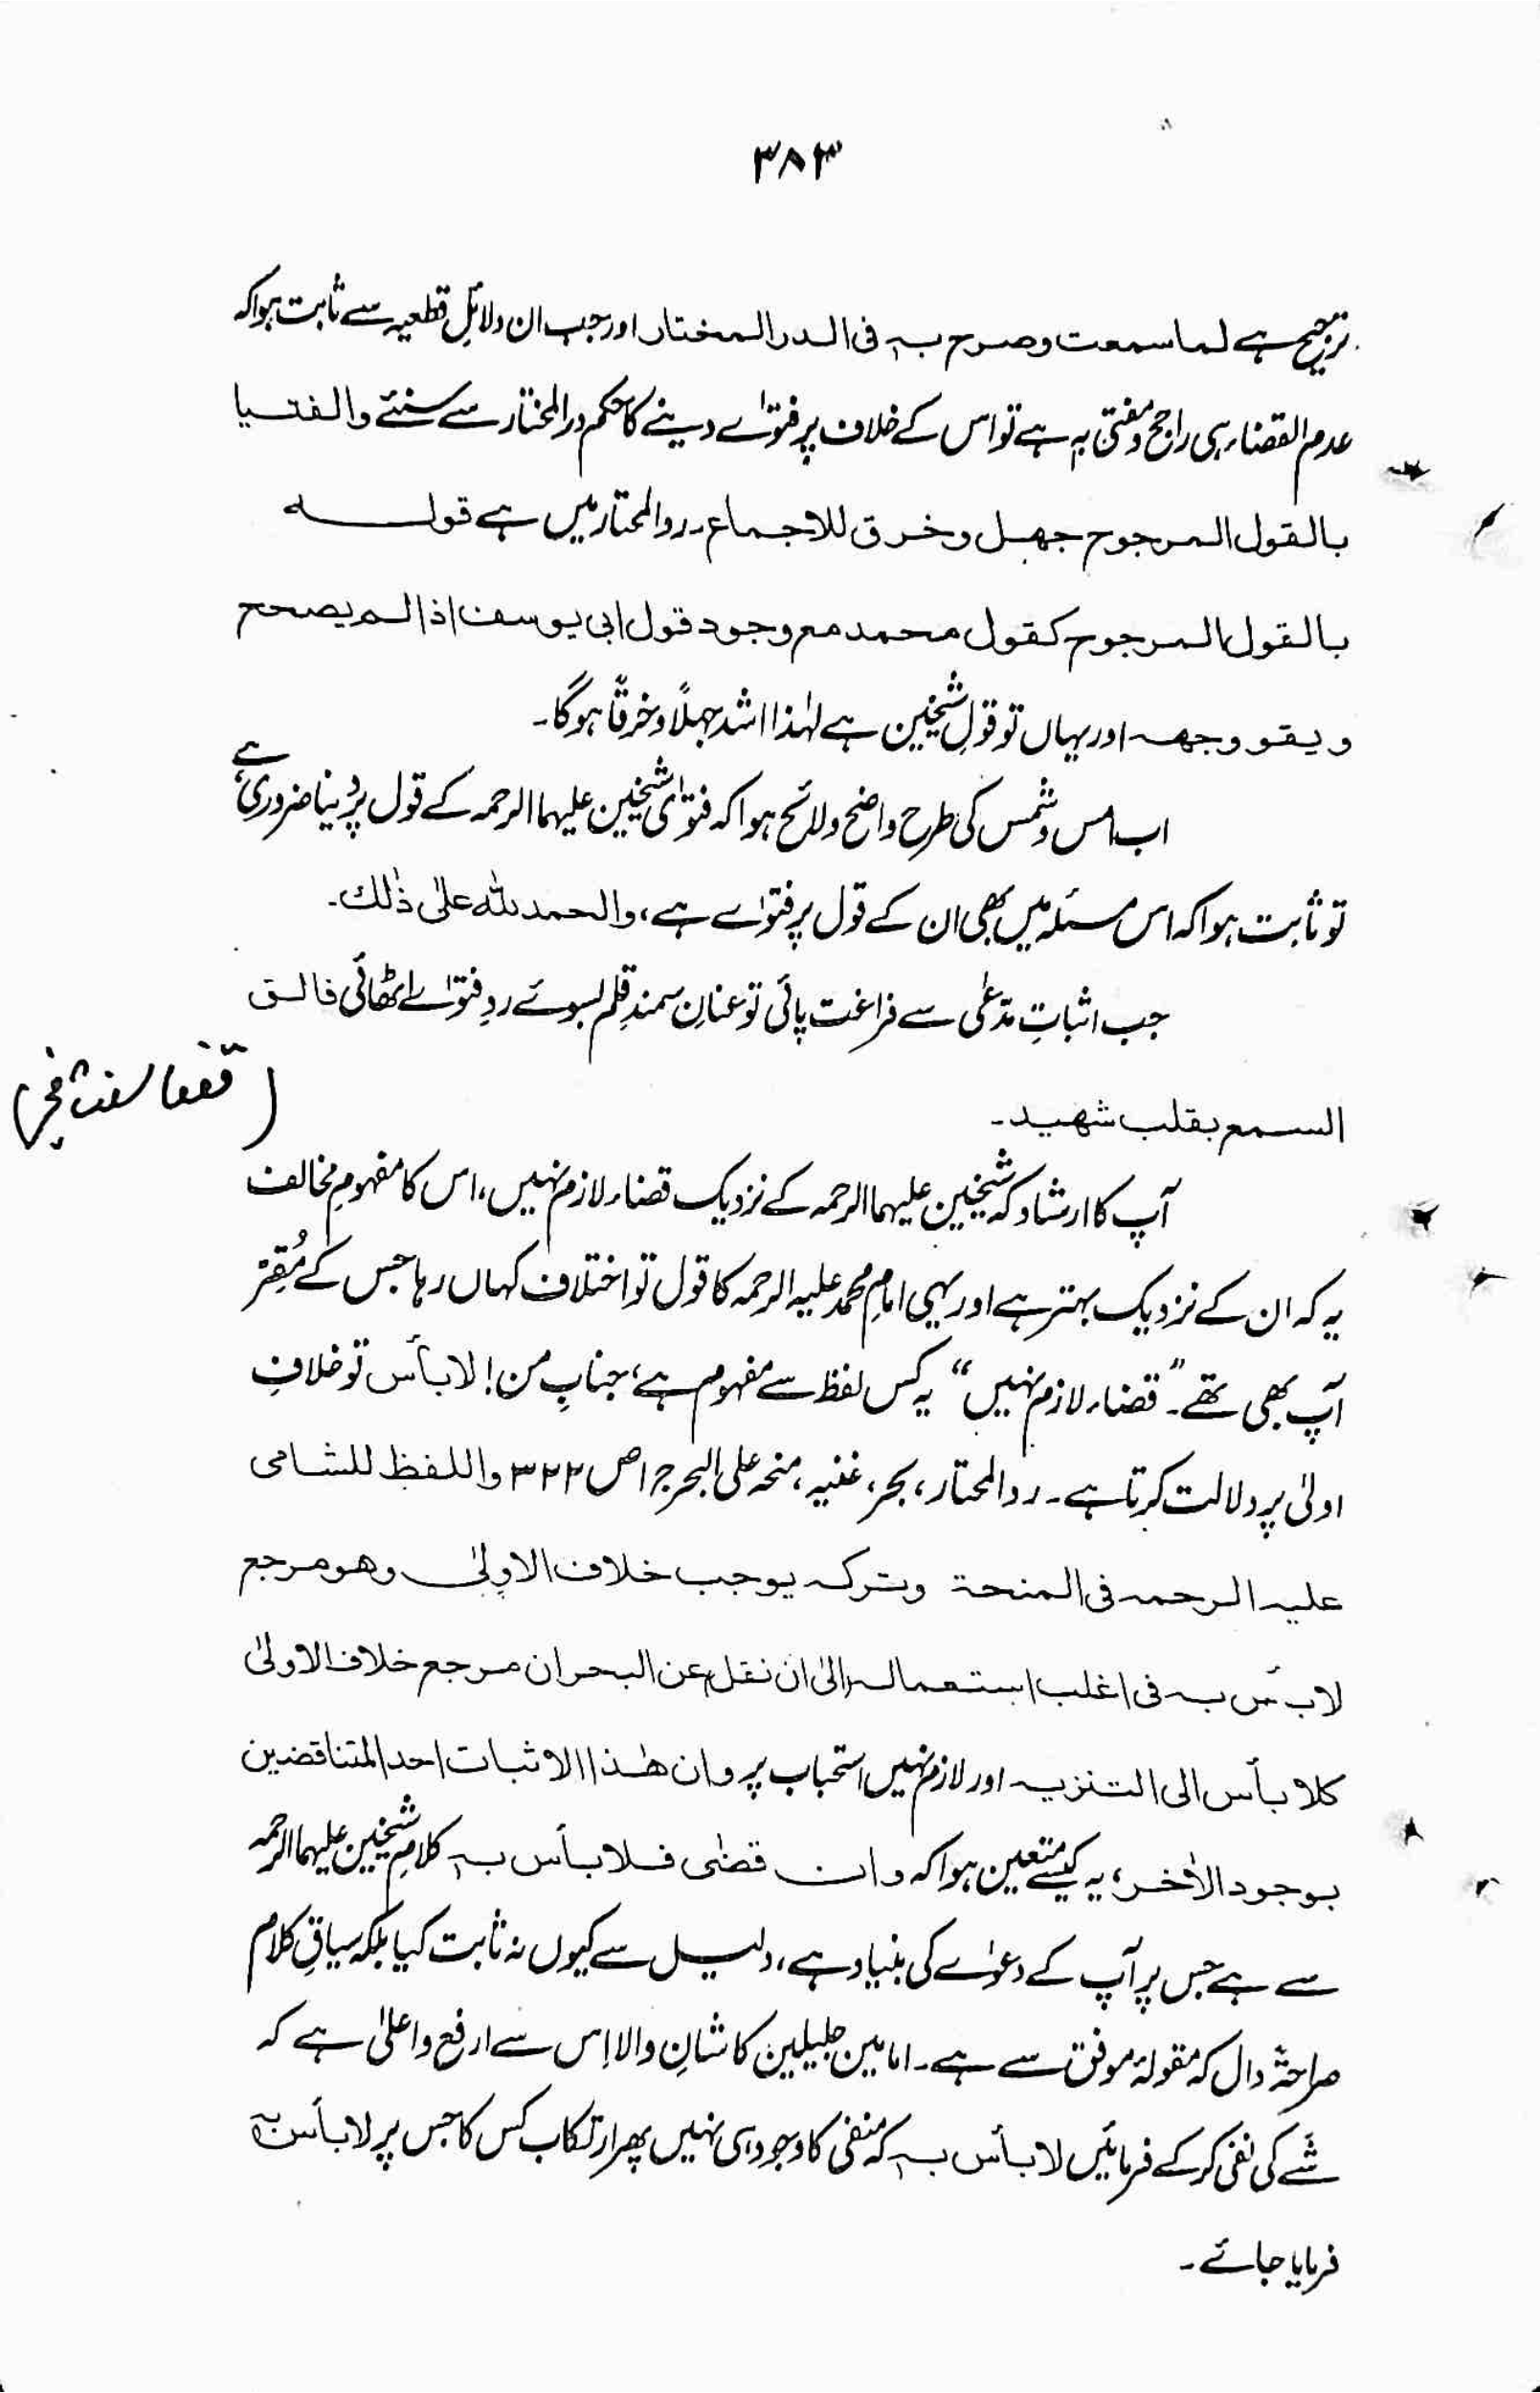 ۳۸۳
ترجیح ہے لما سمعت وصرح بہ فی الدر المختار اور جب ان دلائلِ قطعیہ سے ثابت ہوا کہ
عدم القضاء ہی راجح ومفتیٰ بہٖ ہے تو اس کے خلاف پر فتوٰے دینے کا حکم در المختار سے سنئے والفتیا
بالقول المرجوح جھل وخرق للاجماع۔ رد المحتار میں ہے قولہ
بالقول المرجوح کقول محمد مع وجود قول ابی یوسف اذا لم یصحح
و یقو وجھہ اور یہاں تو قولِ شیخین ہے لہٰذا اشد جہلاً و خرقاً ہوگا۔
اب امس و شمس کی طرح واضح ولائح ہوا کہ فتوٰی شیخین علیہما الرحمہ کے قول پر دینا ضروری ہے
تو ثابت ہوا کہ اس مسئلہ میں بھی ان کے قول پر فتوٰے ہے، والحمد للہ علیٰ ذٰلک۔
جب اثباتِ مدّعٰی سے فراغت پائی تو عنانِ سمندِ قلم بسوئے ردِ فتوٰے اٹھائی فالق
السمع بقلب شھید۔
(قضا سنت فجر)
آپ کا ارشاد کہ شیخین علیہما الرحمہ کے نزدیک قضاء لازم نہیں، اس کا مفہومِ مخالف
یہ کہ ان کے نزدیک بہتر ہے اور یہی امامِ محمد علیہ الرحمہ کا قول تو اختلاف کہاں رہا جس کے مُقِر
آپ بھی تھے۔ ”قضاء لازم نہیں“ یہ کس لفظ سے مفہوم ہے، جنابِ من! لا بأس تو خلافِ
اولیٰ پر دلالت کرتا ہے۔ رد المحتار، بحر، غنیہ، منحہ علی البحر ج ۱ ص ۳۲۲ واللفظ للشامی
علیہ الرحمہ فی المنحۃ وترکہ یوجب خلاف الاولیٰ وھو مرجع
لا بأس بہ فی اغلب استعمالہ الیٰ ان نقل عن البحر ان مرجع خلاف الاولیٰ
کلا بأس الی التنزیہ اور لازم نہیں استحباب پر وان ھٰذا الا ثبات احد المتناقضین
بوجود الاٰخر، یہ کیسے متعین ہوا کہ وان قضٰی فلا بأس بہٖ کلامِ شیخین علیہما الرحمہ
سے ہے جس پر آپ کے دعوٰے کی بنیاد ہے، دلیل سے کیوں نہ ثابت کیا بلکہ سیاقِ کلام
صراحۃً دال کہ مقولۂ موفق سے ہے۔ امامین جلیلین کا شانِ والا اِس سے ارفع واعلیٰ ہے کہ
شَے کی نفی کر کے فرمائیں لا بأس بہٖ کہ منفی کا وجود ہی نہیں پھر ارتکاب کس کا جس پر لا بأس بہٖ
فرمایا جائے۔